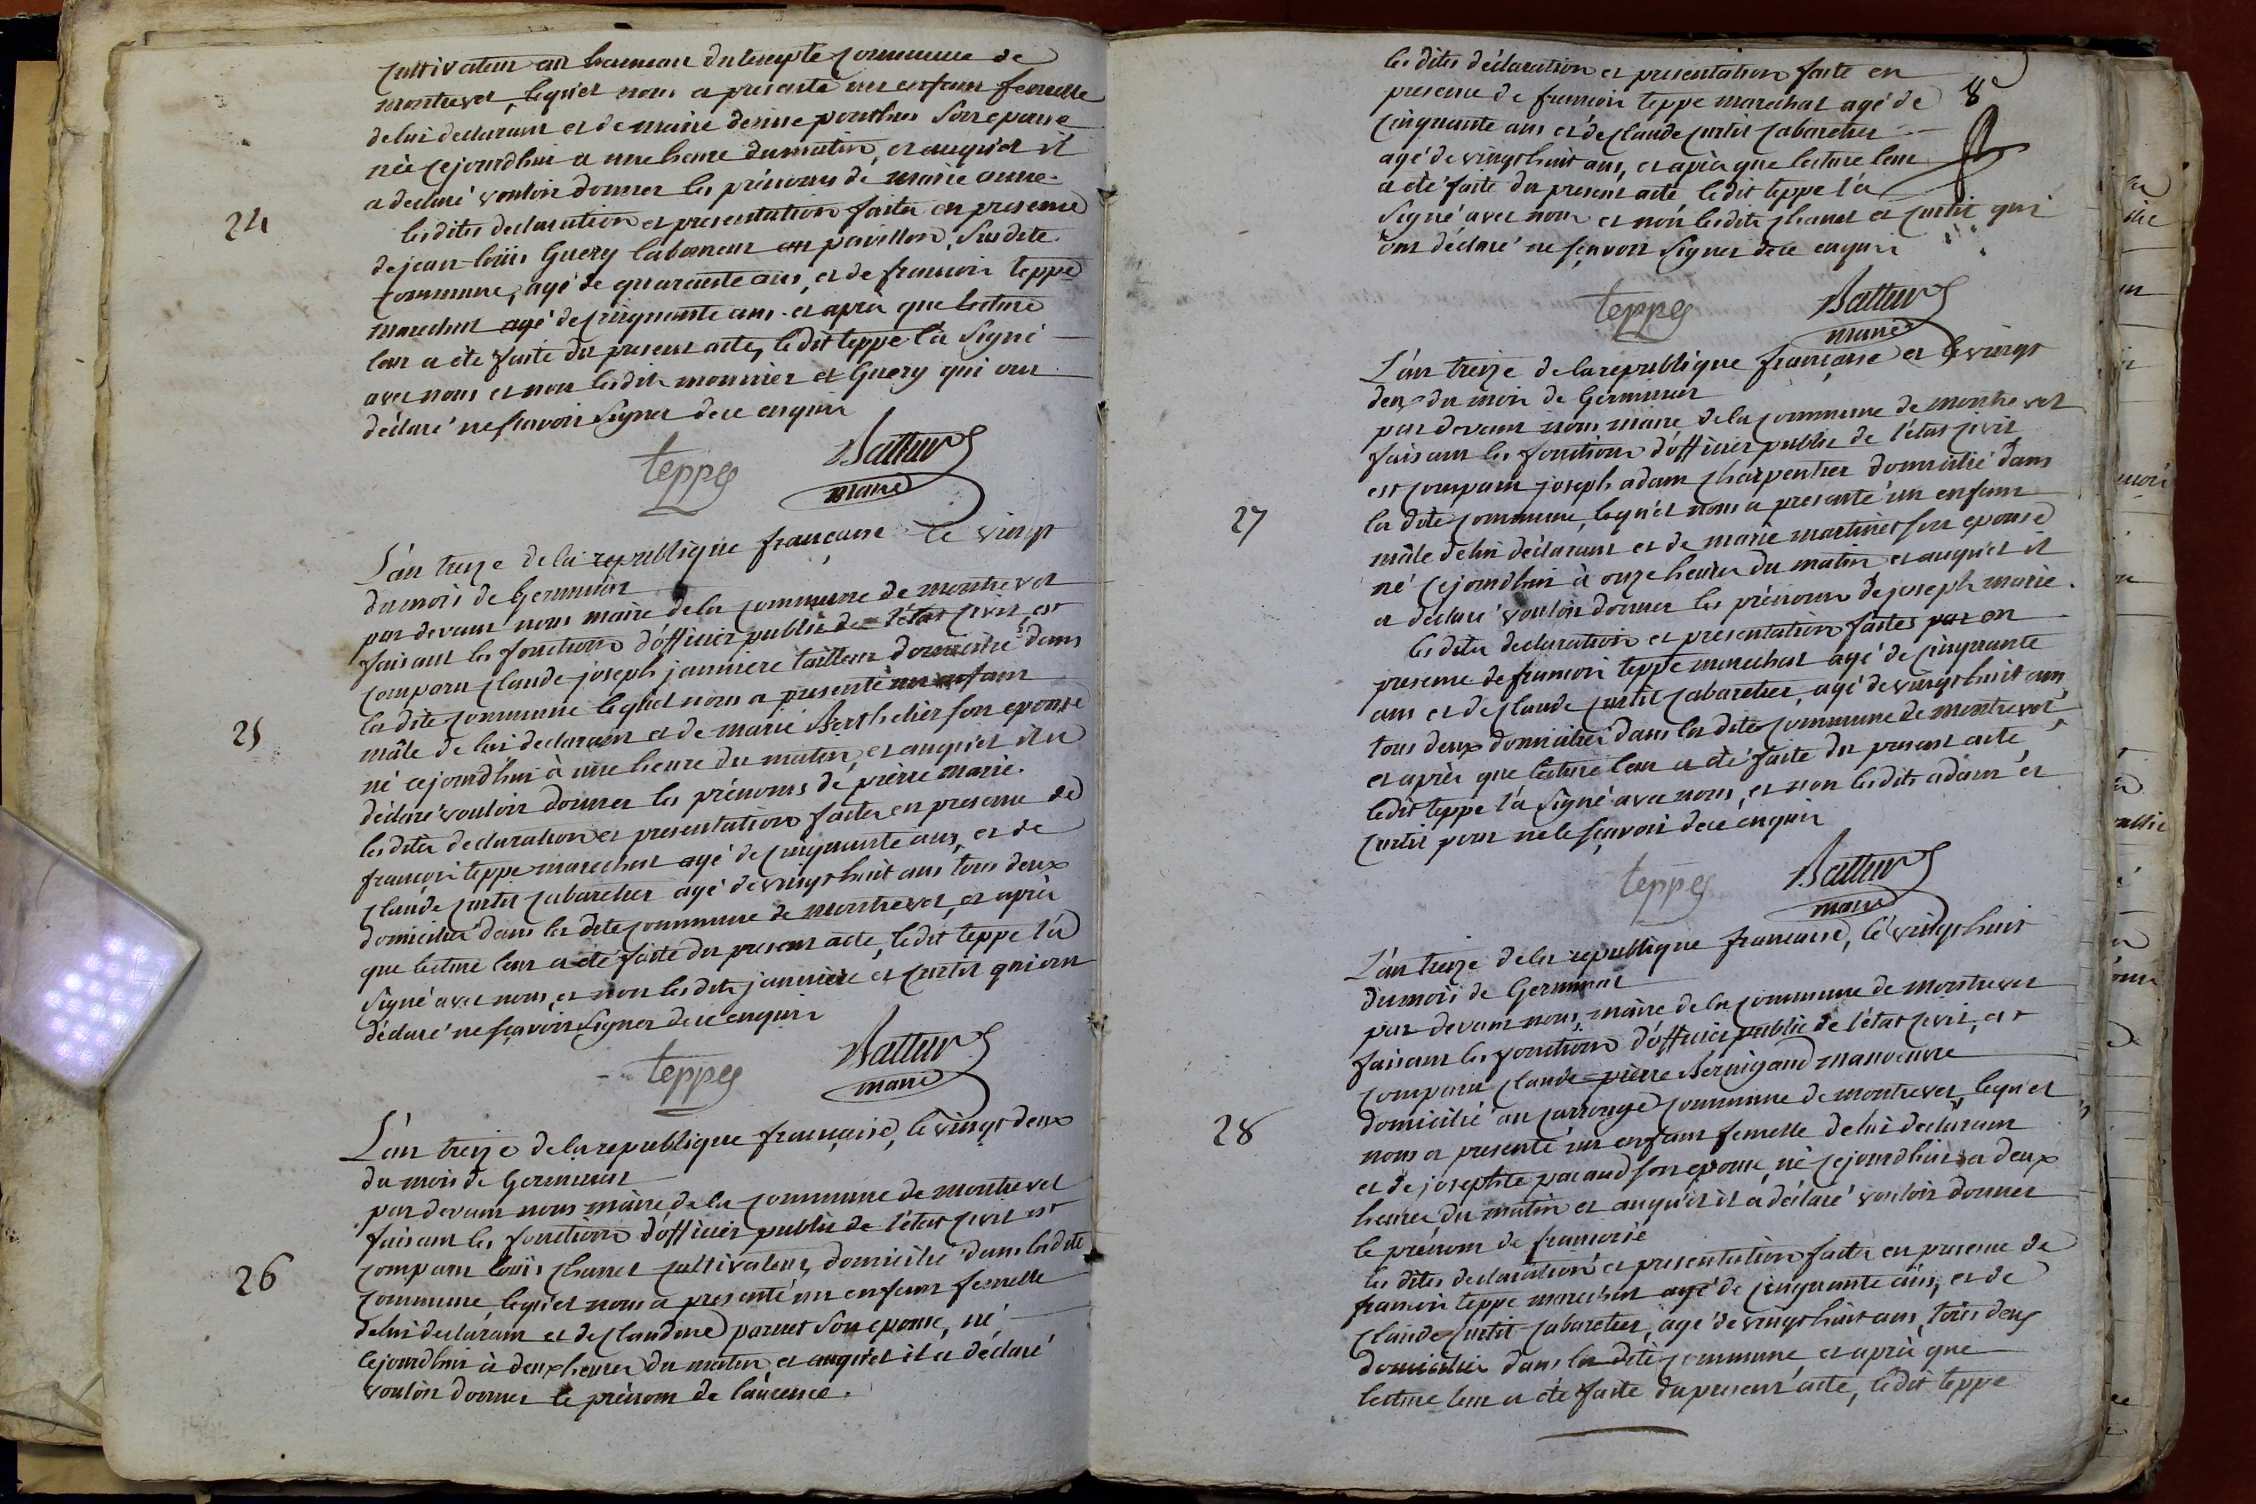 cultivateur au hameau du temple commune de
montrevel, lequel nous a presenté un enfant femelle
de lui declarant et de marie denise ponthus son epouse
née cejourdhui a une heure du matin, et auquel il
a declaré vouloir donner les prénoms de marie anne.
24
les dites declaration et presentation faites en presence
de jean-louis Guery laboureur au pavillon, susdite
commune, agé de quarante ans, et de francois teppe
marechal agé de cinquante ans. et après que lecture
leur a été faite du present acte, ledit teppe l'a signé
avec nous et non lesdits monnier et Guery qui ont
déclaré ne sçavoir signer de ce enquis
teppe
maire
L'an treize de la republique française le vingt
du mois de Germinal
par devant nous maire de la commune de montrevel
faisant les fonctions d'officier public de l'état civil, est
comparu claude-joseph janniere tailleur domicilié dans
25
la dite commune lequel nous a presenté un enfant
mâle de lui declarant et de marie Berthelier son epouse
né cejourdhui à une heure du matin, et auquel il a
déclaré vouloir donner les prénoms de pierre marie.
les dites declaration et presentation faites en presence de
francois teppe marechal agé de cinquante ans, et de
claude curtet cabaretier agé de vingt huit ans tous deux
domiciliés dans la dite commune de montrevel, et après
que lecture leur a été faite du present acte, ledit teppe l'a
signé avec nous, et non lesdits janniere et curtet qui ont
déclaré ne sçavoir signer de ce enquis
teppe
maire
L'an treize de la republique française, le vingt deux
du mois de Germinal
par devant nous maire de la commune de montrevel
faisant les fonctions d'officier public de l'état civil est
comparu louis chanel cultivateur, domicilié dans la dite
26
commune, lequel nous a presenté un enfant femelle
de lui declarant et de claudine parnet son epouse, né
cejourdhui à deux heures du matin et auquel il a déclaré
vouloir donner le prénom de laurence.
les dites déclaration et presentation faite en
presence de francois teppe marechal agé de
8
cinquante ans et de claude curtet cabaretier
agé de vingt huit ans, et après que lecture leur
a été faite du present acte ledit teppe l'a
signé avec nous et non lesdits chanel et curtet qui
ont déclaré ne sçavoir signer de ce enquis
teppe
maire
L'an treize de la republique française et le vingt
deux du mois de Germinal
par devant nous maire de la commune de montrevel
faisant les fonctions d'officier public de l'état civil
est comparu joseph adam charpentier domicilié dans
27
la dite commune, lequel nous a presenté un enfant
mâle de lui déclarant et de marie martinet son epouse
né cejourdhui à onze heures du matin et auquel il
a déclaré vouloir donner les prénoms de joseph marie.
les dites declaration et presentation faites par en
presence de francois teppe marechal agé de cinquante
ans et de claude curtet cabaretier, agé de vingt huit ans,
tous deux domiciliés dans la dite commune de montrevel,
et après que lecture leur a été faite du present acte
ledit teppe l'a signé avec nous, et non lesdits adam et
curtet pour ne le sçavoir de ce enquis
teppe
maire
L'an treize de la republique francaise, le vingt huit
du mois de Germinal
par devant nous, maire de la commune de montrevel
faisant les fonctions d'officier public de l'état civil, est
comparu claude-pierre Bernigaud manoeuvre
domicilié au carrouge commune de montrevel, lequel
28
nous a presenté un enfant femelle de lui declarant
et de josephte pacaud son epouse, né cejourdhui a deux
heures du matin et auquel il a déclaré vouloir donner
le prénom de francoise
les dites declaration et presentation faites en presence de
francois teppe marechal agé de cinquante ans, et de
claude curtet cabaretier, agé de vingt huit ans, tous deux
domiciliés dans la dite commune, et après que
lecture leur a été faite du present acte, ledit teppe